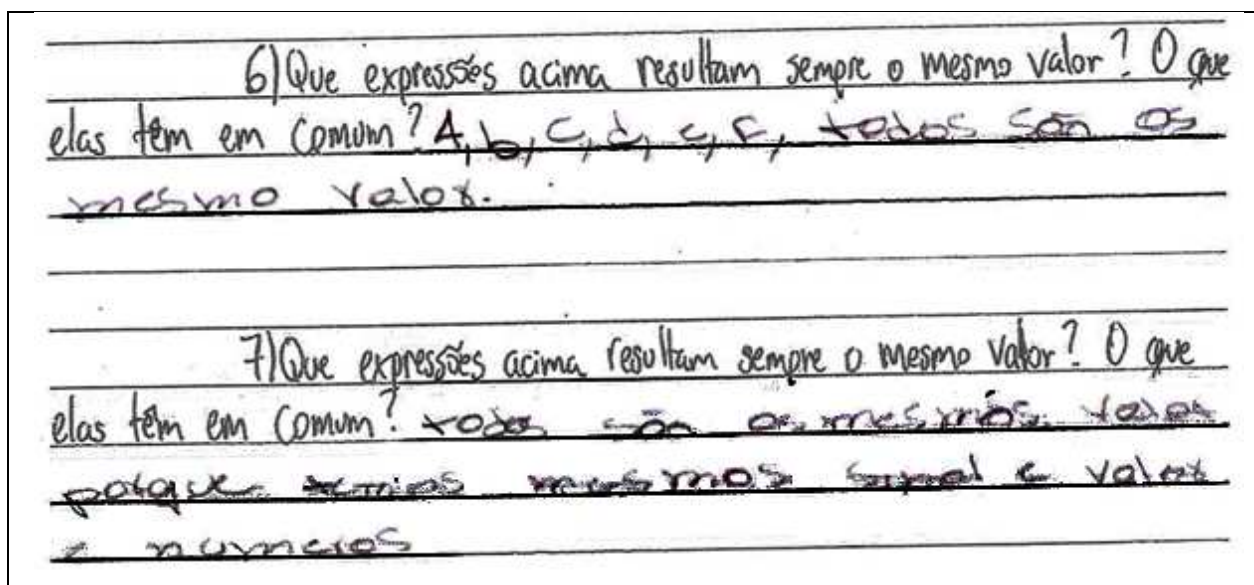 6) Que expressões acima resultam sempre o mesmo valor? O que
elas têm em comum? A, b, c, d, e, F, todos são os
mesmo valor.
7) Que expressões acima resultam sempre o mesmo valor? O que
elas têm em comum? todos são os mesmos valor
porque mesmos sinal e valor
e numeros